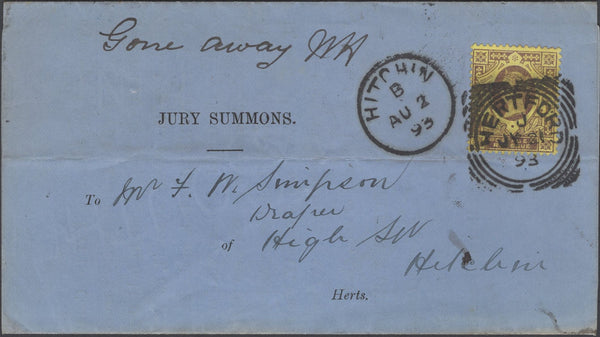 Gone away WH
HITCHIN
B
AU 2
93
HERTFORD
93
JURY SUMMONS.
To Mr F. W. Simpson
Draper
of High Str
Hitchin
Herts.